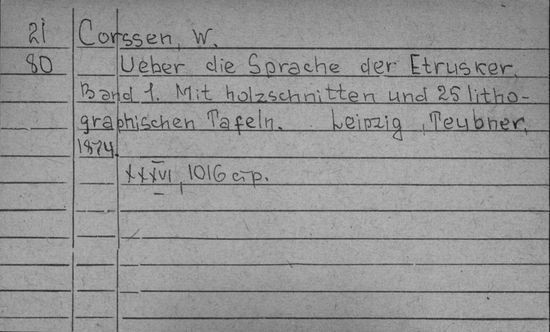 21 Corssen, W.
80 Ueber die Sprache der Etrusker.
Band 1. Mit holzschnitten und 25 litho-
graphischen Tafeln. Leipzig, Teubner,
1874.
XXXVI, 1016 стр.